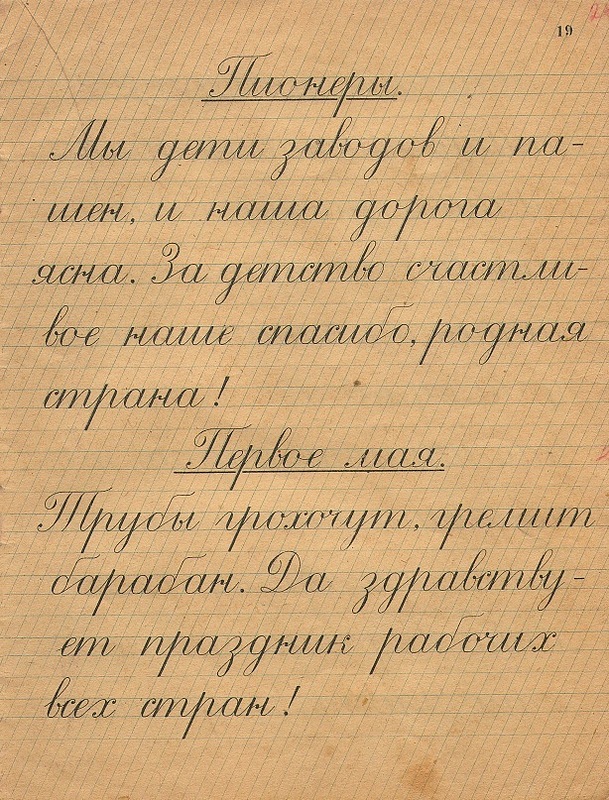 19
Пионеры.
Мы дети заводов и па-
шен, и наша дорога
ясна. За детство счастли-
вое наше спасибо, родная
страна!
Первое мая.
Трубы грохочут, гремит
барабан. Да здравству-
ет праздник рабочих
всех стран!